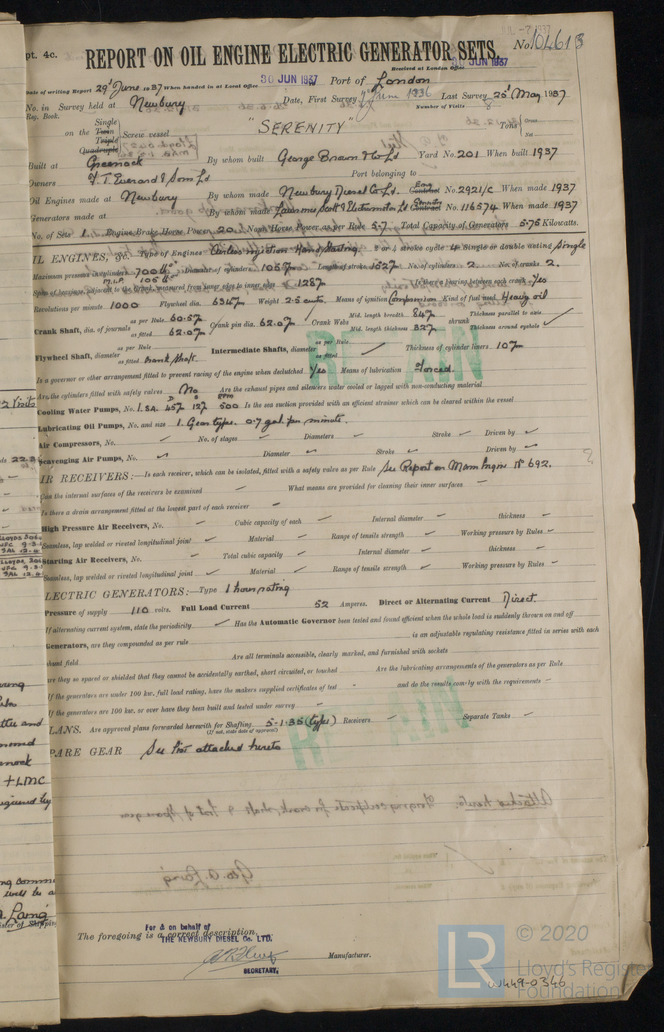 pt. 4c.
REPORT ON OIL ENGINE ELECTRIC GENERATOR SETS.
No. 104618
JUL -7 1937
Received at London Office 30 JUN 1937
Date of writing Report 29th June 1937 When handed in at Local Office 30 JUN 1937 Port of London
No. in Survey held at Newbury Date, First Survey June 1936 Last Survey 25th May 1937
Reg. Book. Number of Visits 8
on the Single Twin Triple Quadruple Screw vessel "SERENITY" Tons Gross Net
Built at Greenock By whom built George Brown & Co Ld Yard No. 201 When built 1937
Owners F. T. Everard & Sons Ld Port belonging to
Oil Engines made at Newbury By whom made Newbury Diesel Co. Ld. Eng No. 2921/c When made 1937
Generators made at By whom made Laurence Scott & Electromotors Ld No. 116574 When made 1937
No. of Sets 1. Engine Brake Horse Power 20 Nom. Horse Power as per Rule 5.7 Total Capacity of Generators 5.75 Kilowatts.
OIL ENGINES, &c. Type of Engines Airless injection Hand starting 2 or 4 stroke cycle 4 Single or double acting Single
Maximum pressure in cylinders 700 lb" Diameter of cylinders 105 m/m Length of stroke 152 m/m No. of cylinders 2. No. of cranks 2.
M.I.P. 105 lb"
Span of bearings, adjacent to the Crank, measured from inner edge to inner edge 128 m/m Is there a bearing between each crank yes
Revolutions per minute 1000 Flywheel dia. Weight 2.5 cwts. Means of ignition Compression Kind of fuel used Heavy oil
Crank Shaft, dia. of journals as per Rule 60.5 m/m as fitted 62.0 m/m Crank pin dia. 62.0 m/m Crank Webs Mid. length breadth 84 m/m Mid. length thickness 32 m/m shrunk Thickness parallel to axis Thickness around eyehole
Flywheel Shaft, diameter as per Rule as fitted Crank shaft. Intermediate Shafts, diameter as per Rule as fitted Thickness of cylinder liners 10 m/m
Is a governor or other arrangement fitted to prevent racing of the engine when declutched yes Means of lubrication Forced
Are the cylinders fitted with safety valves No Are the exhaust pipes and silencers water cooled or lagged with non-conducting material
Cooling Water Pumps, No. 1. S.A. 45 m/m 12 m/m 500 Is the sea suction provided with an efficient strainer which can be cleared within the vessel
Lubricating Oil Pumps, No. and size 1. Gear type. 0.7 gal. per minute.
Air Compressors, No. No. of stages Diameters Stroke Driven by
Scavenging Air Pumps, No. Diameter Stroke Driven by
AIR RECEIVERS:—Is each receiver, which can be isolated, fitted with a safety valve as per Rule See Report on Main Engine No 692.
Can the internal surfaces of the receivers be examined What means are provided for cleaning their inner surfaces
Is there a drain arrangement fitted at the lowest part of each receiver
High Pressure Air Receivers, No. Cubic capacity of each Internal diameter thickness
Seamless, lap welded or riveted longitudinal joint Material Range of tensile strength Working pressure by Rules
Starting Air Receivers, No. Total cubic capacity Internal diameter thickness
Seamless, lap welded or riveted longitudinal joint Material Range of tensile strength Working pressure by Rules
ELECTRIC GENERATORS:—Type 1 hour rating
Pressure of supply 110 volts. Full Load Current 52 Amperes. Direct or Alternating Current Direct.
If alternating current system, state the periodicity Has the Automatic Governor been tested and found efficient when the whole load is suddenly thrown on and off
Generators, are they compounded as per rule is an adjustable regulating resistance fitted in series with each
shunt field Are all terminals accessible, clearly marked, and furnished with sockets
Are they so spaced or shielded that they cannot be accidentally earthed, short circuited, or touched Are the lubricating arrangements of the generators as per Rule
If the generators are under 100 kw. full load rating, have the makers supplied certificates of test and do the results comply with the requirements
If the generators are 100 kw. or over have they been built and tested under survey
PLANS. Are approved plans forwarded herewith for Shafting 5-1-35 (type) Receivers Separate Tanks
(If not, state date of approval)
SPARE GEAR See list attached hereto
RETAIN
RETAIN
The foregoing is a correct description,
For & on behalf of
THE NEWBURY DIESEL Co. LTD.
SECRETARY. Manufacturer.
LR © 2020
Lloyd's Register
Foundation
W449-0346